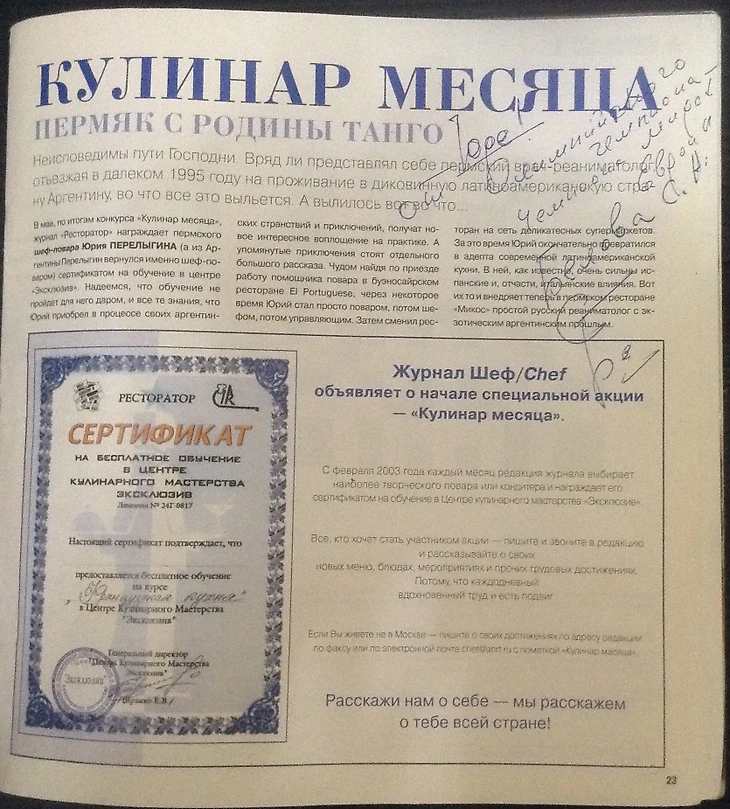 КУЛИНАР МЕСЯЦА
ПЕРМЯК С РОДИНЫ ТАНГО
Неисповедимы пути Господни. Вряд ли представлял себе пермский врач-реаниматолог,
отъезжая в далеком 1995 году на проживание в диковинную латиноамериканскую стра-
ну Аргентину, во что все это выльется. А вылилось вот во что...
В мае, по итогам конкурса «Кулинар месяца»,
журнал «Ресторатор» награждает пермского
шеф-повара Юрия ПЕРЕЛЫГИНА (а из Ар-
гентины Перелыгин вернулся именно шеф-по-
варом) сертификатом на обучение в центре
«Эксклюзив». Надеемся, что обучение не
пройдет для него даром, и все те знания, что
Юрий приобрел в процессе своих аргентин-
ских странствий и приключений, получат но-
вое интересное воплощение на практике. А
упомянутые приключения стоят отдельного
большого рассказа. Чудом найдя по приезде
работу помощника повара в буэносайрском
ресторане El Portuguese, через некоторое
время Юрий стал просто поваром, потом ше-
фом, потом управляющим. Затем сменил рес-
торан на сеть деликатесных супермаркетов.
За это время Юрий окончательно превратился
в адепта современной латиноамериканской
кухни. В ней, как известно, очень сильны ис-
панские и, отчасти, итальянские влияния. Вот
их то и внедряет теперь в пермском ресторане
«Микос» простой русский реаниматолог с эк-
зотическим аргентинским прошлым.
Юре!
от
чемпиона
мира
Европы
РЕСТОРАТОР
СЕРТИФИКАТ
НА БЕСПЛАТНОЕ ОБУЧЕНИЕ
В ЦЕНТРЕ
КУЛИНАРНОГО МАСТЕРСТВА
ЭКСКЛЮЗИВ
Лицензия № 24Г-0817
Настоящий сертификат подтверждает, что
предоставляется бесплатное обучение
на курсе
"Французская кухня"
в Центре Кулинарного Мастерства
"Эксклюзив"
Генеральный директор
"Центра Кулинарного Мастерства
Эксклюзив"
Эксклюзив
Журнал Шеф/Chef
объявляет о начале специальной акции
— «Кулинар месяца».
С февраля 2003 года каждый месяц редакция журнала выбирает
наиболее творческого повара или кондитера и награждает его
сертификатом на обучение в Центре кулинарного мастерства «Эксклюзив».
Все, кто хочет стать участником акции — пишите и звоните в редакцию
и рассказывайте о своих
новых меню, блюдах, мероприятиях и прочих трудовых достижениях.
Потому, что каждодневный
вдохновенный труд и есть подвиг.
Если Вы живете не в Москве — пишите о своих достижениях по адресу редакции,
по факсу или по электронной почте с пометкой «Кулинар месяца».
Расскажи нам о себе — мы расскажем
о тебе всей стране!
23